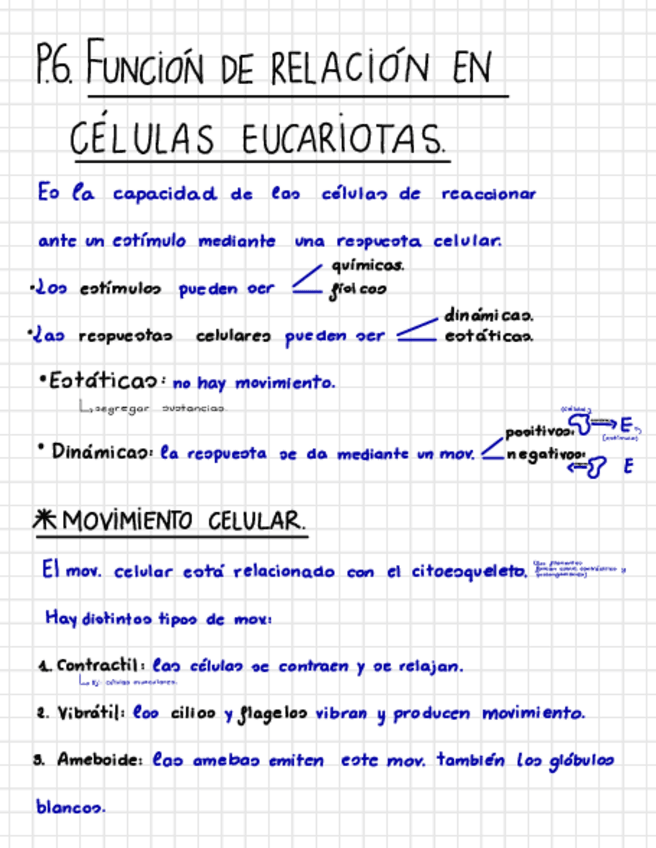 P.6. FUNCIÓN DE RELACIÓN EN
CÉLULAS EUCARIOTAS.
Es la capacidad de las células de reaccionar
ante un estímulo mediante una respuesta celular.
químicos.
•Los estímulos pueden ser
físicos
dinámicas.
•Las respuestas celulares pueden ser
estáticas.
•Estáticas: no hay movimiento.
segregar sustancias.
(célula)
positivos: E
(estímulo)
• Dinámicas: la respuesta se da mediante un mov.
negativos: E
* MOVIMIENTO CELULAR.
El mov. celular está relacionado con el citoesqueleto.
Hay distintos tipos de mov:
1. Contractil: las células se contraen y se relajan.
Ej: células musculares.
2. Vibrátil: los cilios y flagelos vibran y producen movimiento.
3. Ameboide: las amebas emiten este mov. también los glóbulos
blancos.